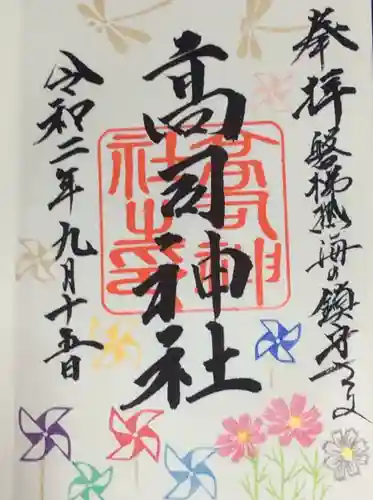 奉拝 磐梯熱海の鎮守さま
高司神社
高司神社之印
令和二年九月十五日